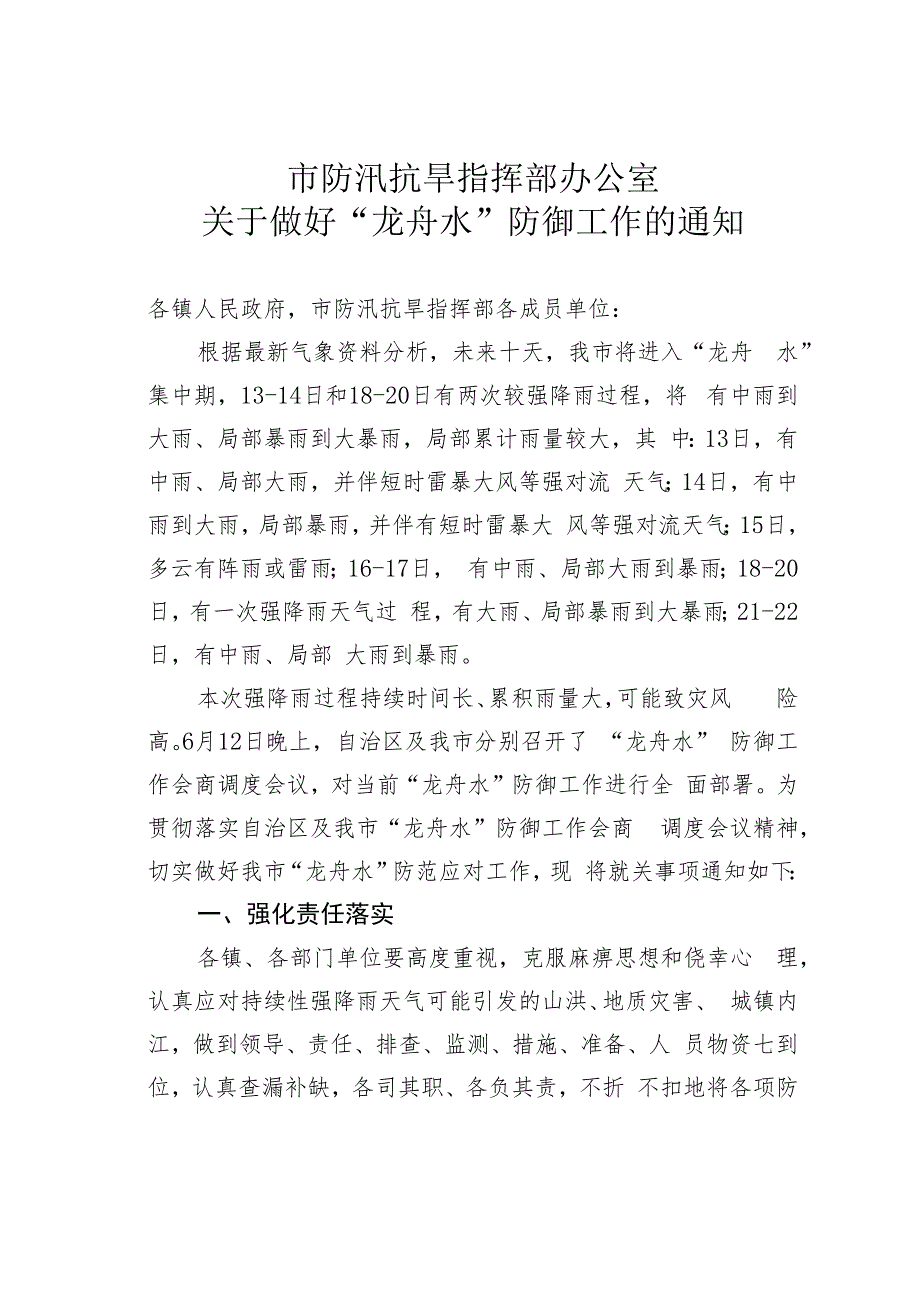 市防汛抗旱指挥部办公室
关于做好“龙舟水”防御工作的通知
各镇人民政府，市防汛抗旱指挥部各成员单位：
根据最新气象资料分析，未来十天，我市将进入“龙舟 水”
集中期，13-14日和18-20日有两次较强降雨过程，将 有中雨到
大雨、局部暴雨到大暴雨，局部累计雨量较大，其 中：13日，有
中雨、局部大雨，并伴短时雷暴大风等强对流 天气；14日，有中
雨到大雨，局部暴雨，并伴有短时雷暴大 风等强对流天气；15日，
多云有阵雨或雷雨；16-17日， 有中雨、局部大雨到暴雨；18-20
日，有一次强降雨天气过 程，有大雨、局部暴雨到大暴雨；21-22
日，有中雨、局部 大雨到暴雨。
本次强降雨过程持续时间长、累积雨量大，可能致灾风 险
高。6月12日晚上，自治区及我市分别召开了 “龙舟水” 防御工
作会商调度会议，对当前“龙舟水”防御工作进行全 面部署。为
贯彻落实自治区及我市“龙舟水”防御工作会商 调度会议精神，
切实做好我市“龙舟水”防范应对工作，现 将就关事项通知如下：
一、强化责任落实
各镇、各部门单位要高度重视，克服麻痹思想和侥幸心 理，
认真应对持续性强降雨天气可能引发的山洪、地质灾害、 城镇内
江，做到领导、责任、排查、监测、措施、准备、人 员物资七到
位，认真查漏补缺，各司其职、各负其责，不折 不扣地将各项防